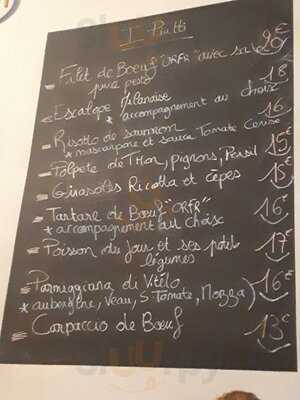 I Piatti
Filet de Boeuf "ORFR" avec sa
pure pesto 20€
Escalope Milanaise 18
* accompagnement au choix
Risotto de saumon 16
* mascarpone et sauce Tomate Cerise
Polpete de Thon, pignons, Persil 15€
Girasoles Ricotta et cèpes 15€
Tartare de Boeuf "ORFR" 16€
* accompagnement au choix
Poisson du jour et ses petits 17€
légumes
Parmeggiana di Vitelo 16€
* aubergine, Veau, S. Tomate, Mozza)
Carpaccio de Boeuf 13€